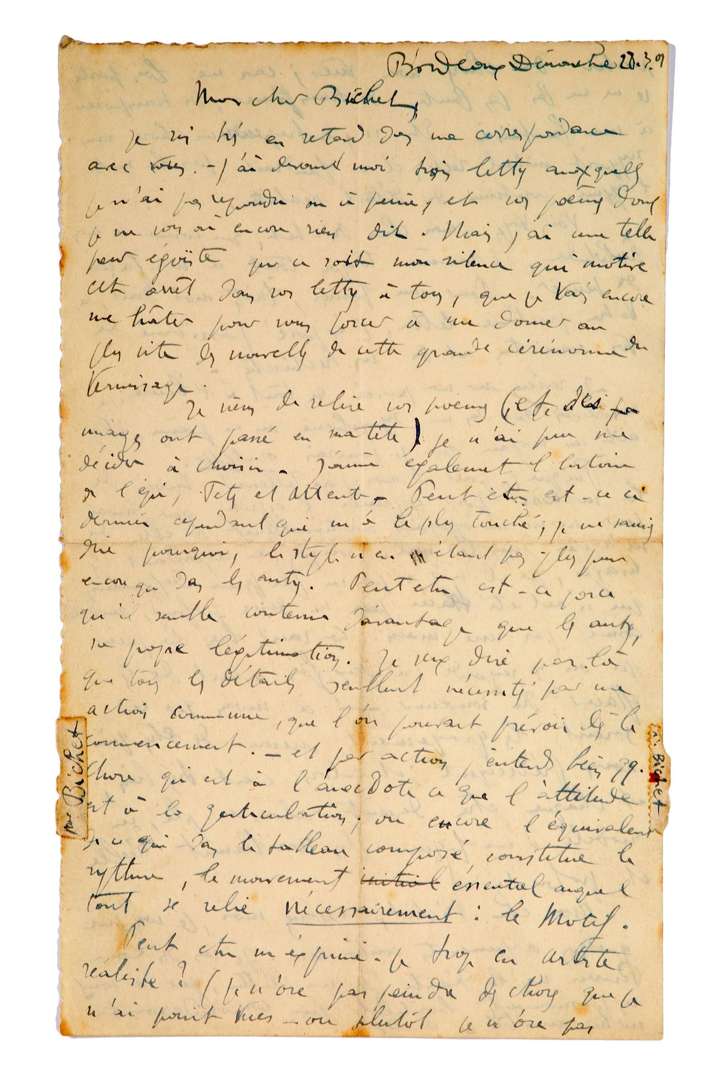 Bordeaux Dimanche 28.3.9
Mon cher Bichet,
Je suis très en retard dans ma correspondance
avec vous. – J'ai devant moi trois lettres auxquelles
je n'ai pas répondu ou à peine, et vos poèmes dont
je ne vous ai encore rien dit. Mais j'ai une telle
peur égoïste que ce soit mon silence qui motive
cet arrêt dans vos lettres à tous, que je vais encore
me hâter pour vous forcer à me donner au
plus vite des nouvelles de cette grande cérémonie du
Vernissage.
Je viens de relire vos poèmes (et des
images ont passé en ma tête) je n'ai pu me
décider à choisir – J'aime également l'histoire
de l'épi, et Attente. Peut être est-ce ce
dernier cependant qui m'a le plus touché, je ne saurais
dire pourquoi, le style n'en étant pas plus pur
encore que dans les autres. Peut être est-ce parce
qu'il semble contenir davantage que les autres,
sa propre légitimation. Je veux dire par là
que tous les détails semblent nécessités par une
action commune, que l'on pouvait prévoir dès le
commencement. – et par action j'entends bien qq.
chose qui est à l'anecdote ce que l'attitude
est à la gesticulation, ou encore l'équivalent
de ce qui dans le tableau composé, constitue le
rythme, le mouvement initial essentiel auquel
tout se relie nécessairement : le Motif.
Peut être m'exprimé-je trop en artiste
réaliste ? (je n'ose pas peindre des choses que je
n'ai point vues – ou plutôt je n'ose pas
Bichet
Bichet